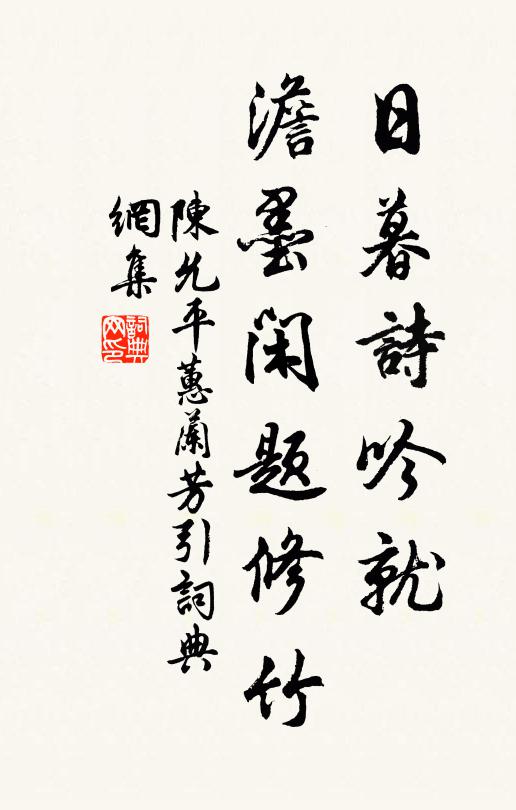 日暮詩吟就
澹墨閑題修竹
陳允平蕙蘭芳引詞典
網集
詞典
网印